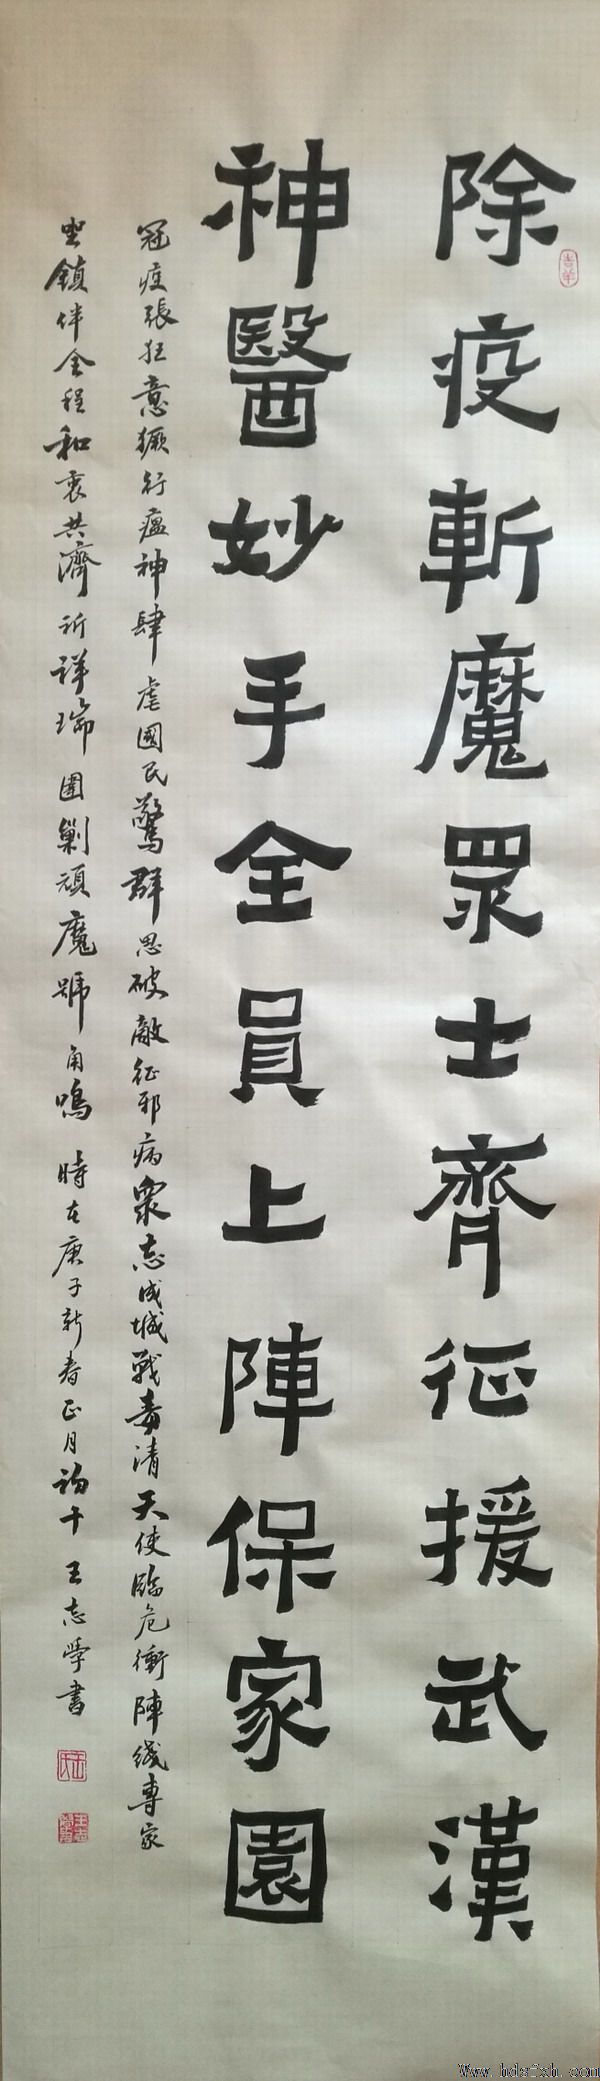 除疫斬魔眾士齊征援武漢
神醫妙手全員上陣保家園
冠疫張狂意獗行瘟神肆虐國民驚群思破敵征邪病眾志成城戰毒清天使臨危衝陣綫專家
坐鎮伴全程和衷共濟祈祥瑞圍剿頑魔號角鳴 時在庚子新春正月初十 王志學書
Www.hdsfxh.com